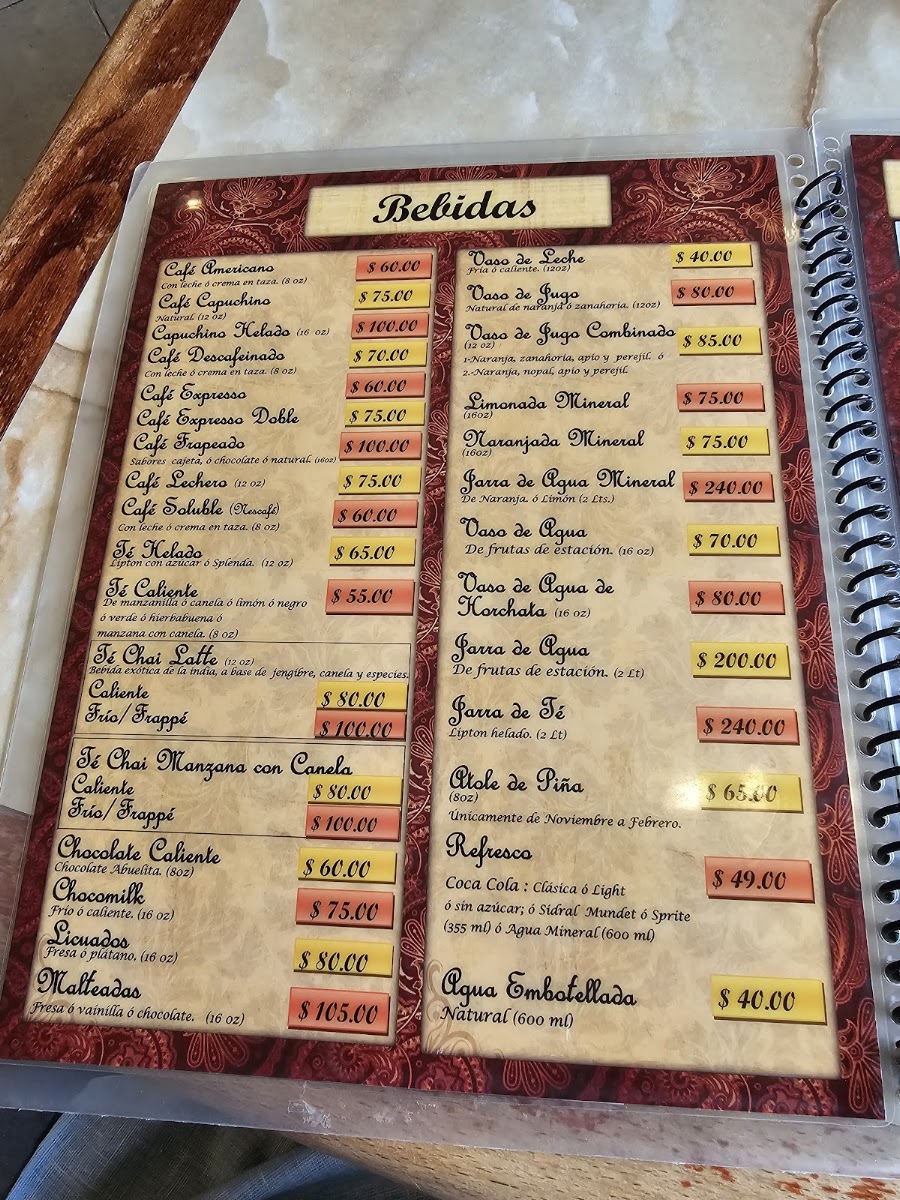 Bebidas
Café Americano $ 60.00
Con leche ó crema en taza. (8 oz)
Café Capuchino $ 75.00
Natural. (12 oz)
Capuchino Helado (16 oz) $ 100.00
Café Descafeinado $ 70.00
Con leche ó crema en taza. (8 oz)
Café Expresso $ 60.00
Café Expresso Doble $ 75.00
Café Frapeado $ 100.00
Sabores cajeta, ó chocolate ó natural. (16oz)
Café Lechero (12 oz) $ 75.00
Café Soluble (Nescafé) $ 60.00
Con leche ó crema en taza. (8 oz)
Té Helado $ 65.00
Lipton con azúcar ó Splenda. (12 oz)
Té Caliente $ 55.00
De manzanilla ó canela ó limón ó negro
ó verde ó hierbabuena ó
manzana con canela. (8 oz)
Té Chai Latte (12 oz)
Bebida exótica de la india, a base de jengibre, canela y especies.
Caliente $ 80.00
Frío/Frappé $ 100.00
Té Chai Manzana con Canela
Caliente $ 80.00
Frío/Frappé $ 100.00
Chocolate Caliente $ 60.00
Chocolate Abuelita. (8oz)
Chocomilk $ 75.00
Frío ó caliente. (16 oz)
Licuados $ 80.00
Fresa ó plátano. (16 oz)
Malteadas $ 105.00
Fresa ó vainilla ó chocolate. (16 oz)
Vaso de Leche $ 40.00
Fría ó caliente. (12oz)
Vaso de Jugo $ 80.00
Natural de naranja ó zanahoria. (12oz)
Vaso de Jugo Combinado $ 85.00
(12 oz)
1-Naranja, zanahoria, apio y perejil. ó
2.-Naranja, nopal, apio y perejil.
Limonada Mineral $ 75.00
(16oz)
Naranjada Mineral $ 75.00
(16oz)
Jarra de Agua Mineral $ 240.00
De Naranja. ó Limón (2 Lts.)
Vaso de Agua $ 70.00
De frutas de estación. (16 oz)
Vaso de Agua de $ 80.00
Horchata (16 oz)
Jarra de Agua $ 200.00
De frutas de estación. (2 Lt)
Jarra de Té $ 240.00
Lipton helado. (2 Lt)
Atole de Piña $ 65.00
(8oz)
Únicamente de Noviembre a Febrero.
Refresco $ 49.00
Coca Cola : Clásica ó Light
ó sin azúcar; ó Sidral Mundet ó Sprite
(355 ml) ó Agua Mineral (600 ml)
Agua Embotellada $ 40.00
Natural (600 ml)